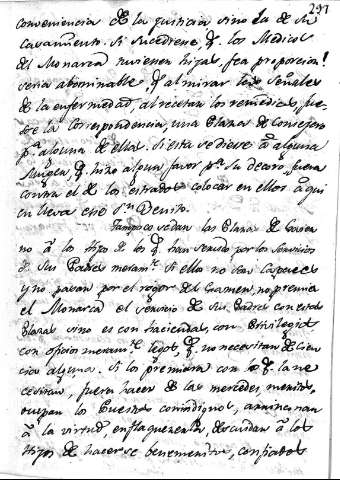 297
conveniencia de la justicia sino la de su
casamiento. Si sucediese q. los Medicos
del Monarca tuviesen hijas, fea proporcion!
seria abominable q. al mirar las señales
de la enfermedad, al recetar los remedios, fue-
se la correspondencia, una Plaza de Consejero
pª alguna de ellas. Si esta se diese â alguna
Muger, q. hizo algun favor pr. su decoro, fuera
contra el de los estrados colocar en ellos â qui
en lleva ese Sn Benito.
Tampoco se dan las Plazas de Govier
no â los hijos de los q. han servido por los servicios
de sus Padres meramte. Si ellos no son capaces
y no pasan por el rigor del Examen, no premia
el Monarca el servicio de sus Padres con estas
Plazas sino es con haciendas, con Privilegios
con oficios meramte. legos, q. no necesitan de Cien
cia alguna. Si los premiara con lo q. la ne
cesitan, fuera hacer de las mercedes, meritos,
ocupan los Puestos con indignos, arruinan
â la virtud, enflaquecerla, descuidan â los
hijos de hacerse benemeritos, confiados